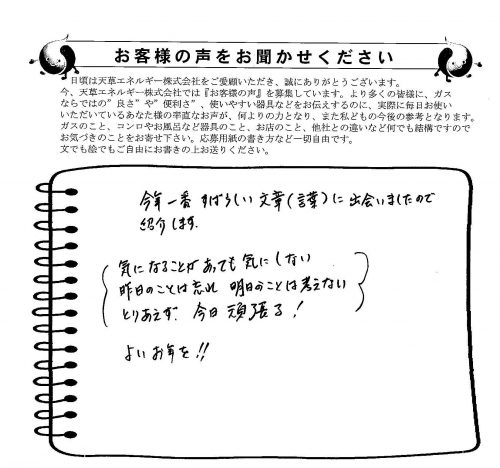 お客様の声をお聞かせください
日頃は天草エネルギー株式会社をご愛顧いただき、誠にありがとうございます。
今、天草エネルギー株式会社では『お客様の声』を募集しています。より多くの皆様に、ガス
ならではの”良さ”や”便利さ”、使いやすい器具などをお伝えするのに、実際に毎日お使い
いただいているあなた様の率直なお声が、何よりの力となり、また私どもの今後の参考となります。
ガスのこと、コンロやお風呂など器具のこと、お店のこと、他社との違いなど何でも結構ですので
お気づきのことをお寄せ下さい。応募用紙の書き方など一切自由です。
文でも絵でもご自由にお書きの上お送りください。
今年一番 すばらしい文章(言葉)に出会いましたので
紹介します。
気になることがあっても気にしない
昨日のことは忘れ 明日のことは考えない
とりあえず 今日頑張る!
よいお年を!!